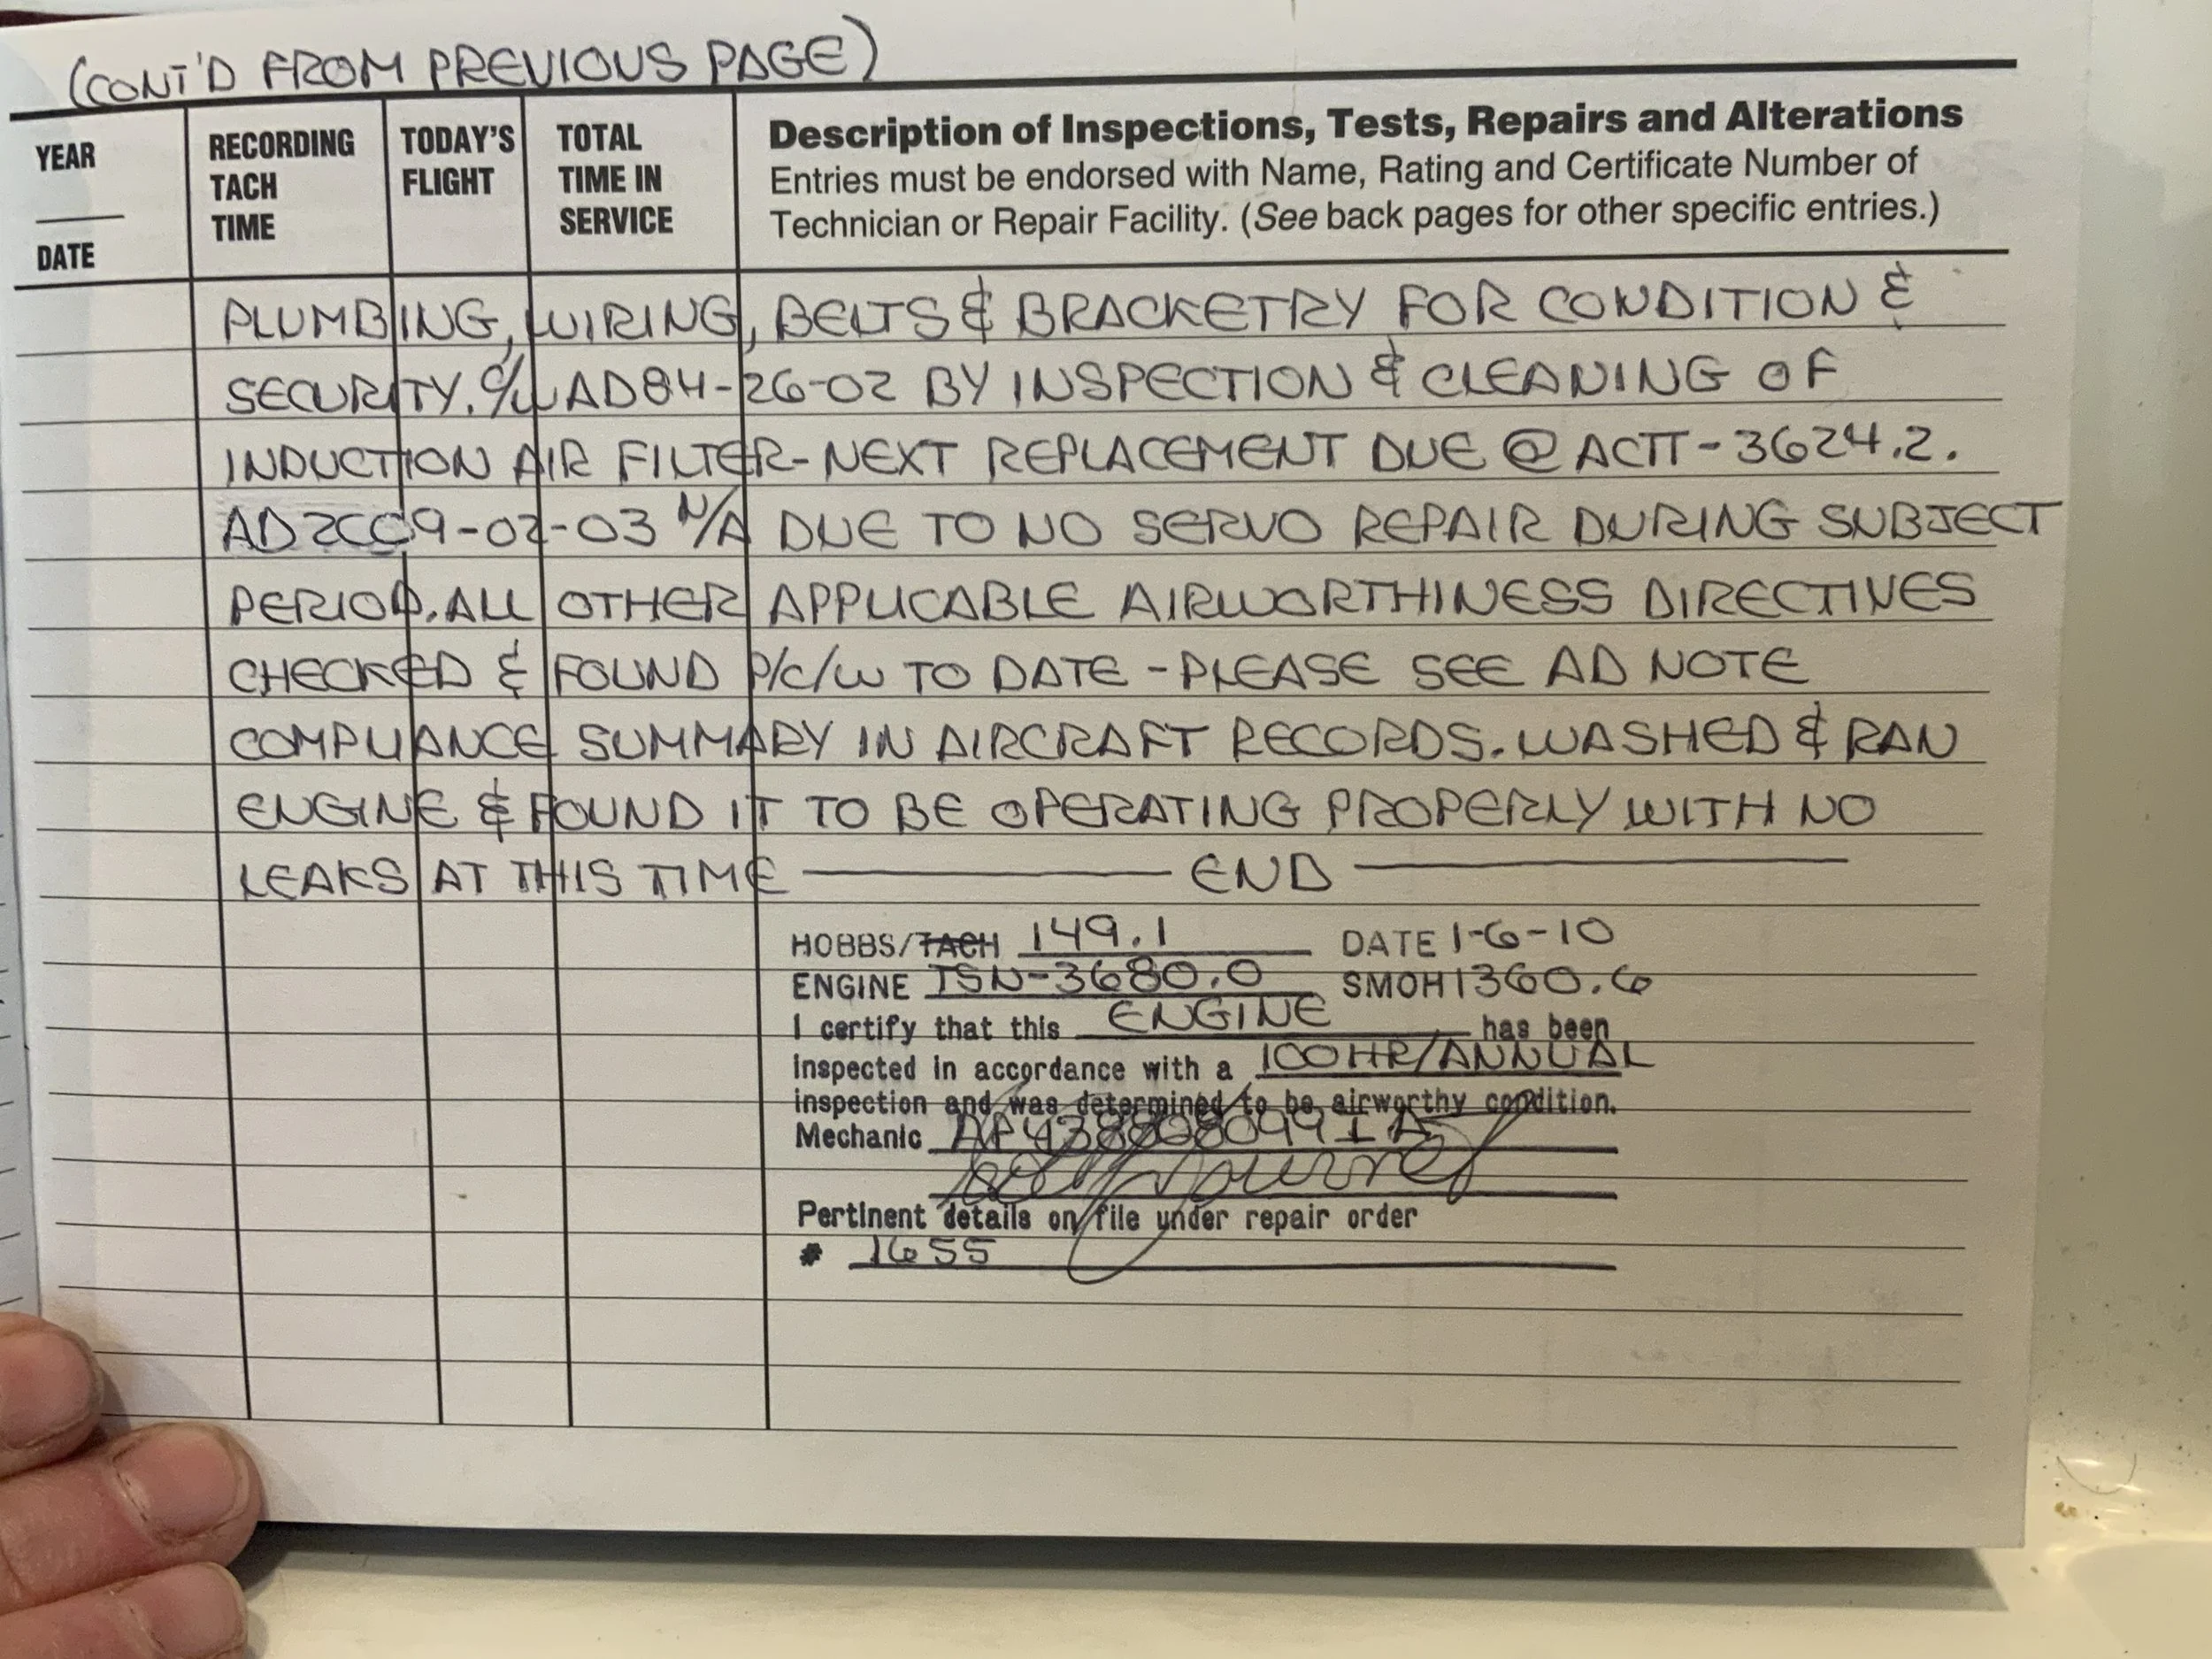 (CONT'D FROM PREVIOUS PAGE)
YEAR
DATE
RECORDING
TACH
TIME
TODAY'S
FLIGHT
TOTAL
TIME IN
SERVICE
Description of Inspections, Tests, Repairs and Alterations
Entries must be endorsed with Name, Rating and Certificate Number of
Technician or Repair Facility. (See back pages for other specific entries.)
PLUMBING, WIRING, BELTS & BRACKETRY FOR CONDITION &
SECURITY. C/W AD84-26-02 BY INSPECTION & CLEANING OF
INDUCTION AIR FILTER-NEXT REPLACEMENT DUE @ ACTT-3624.2.
AD2009-02-03 N/A DUE TO NO SERVO REPAIR DURING SUBJECT
PERIOD. ALL OTHER APPLICABLE AIRWORTHINESS DIRECTIVES
CHECKED & FOUND P/C/W TO DATE - PLEASE SEE AD NOTE
COMPLIANCE SUMMARY IN AIRCRAFT RECORDS. WASHED & RAN
ENGINE & FOUND IT TO BE OPERATING PROPERLY WITH NO
LEAKS AT THIS TIME ——— END ———
HOBBS/TACH 149.1 DATE 1-6-10
ENGINE TSN-3680.0 SMOH 1360.6
I certify that this ENGINE has been
inspected in accordance with a 100HR/ANNUAL
inspection and was determined to be airworthy condition.
Mechanic
Pertinent details on file under repair order
# 1655